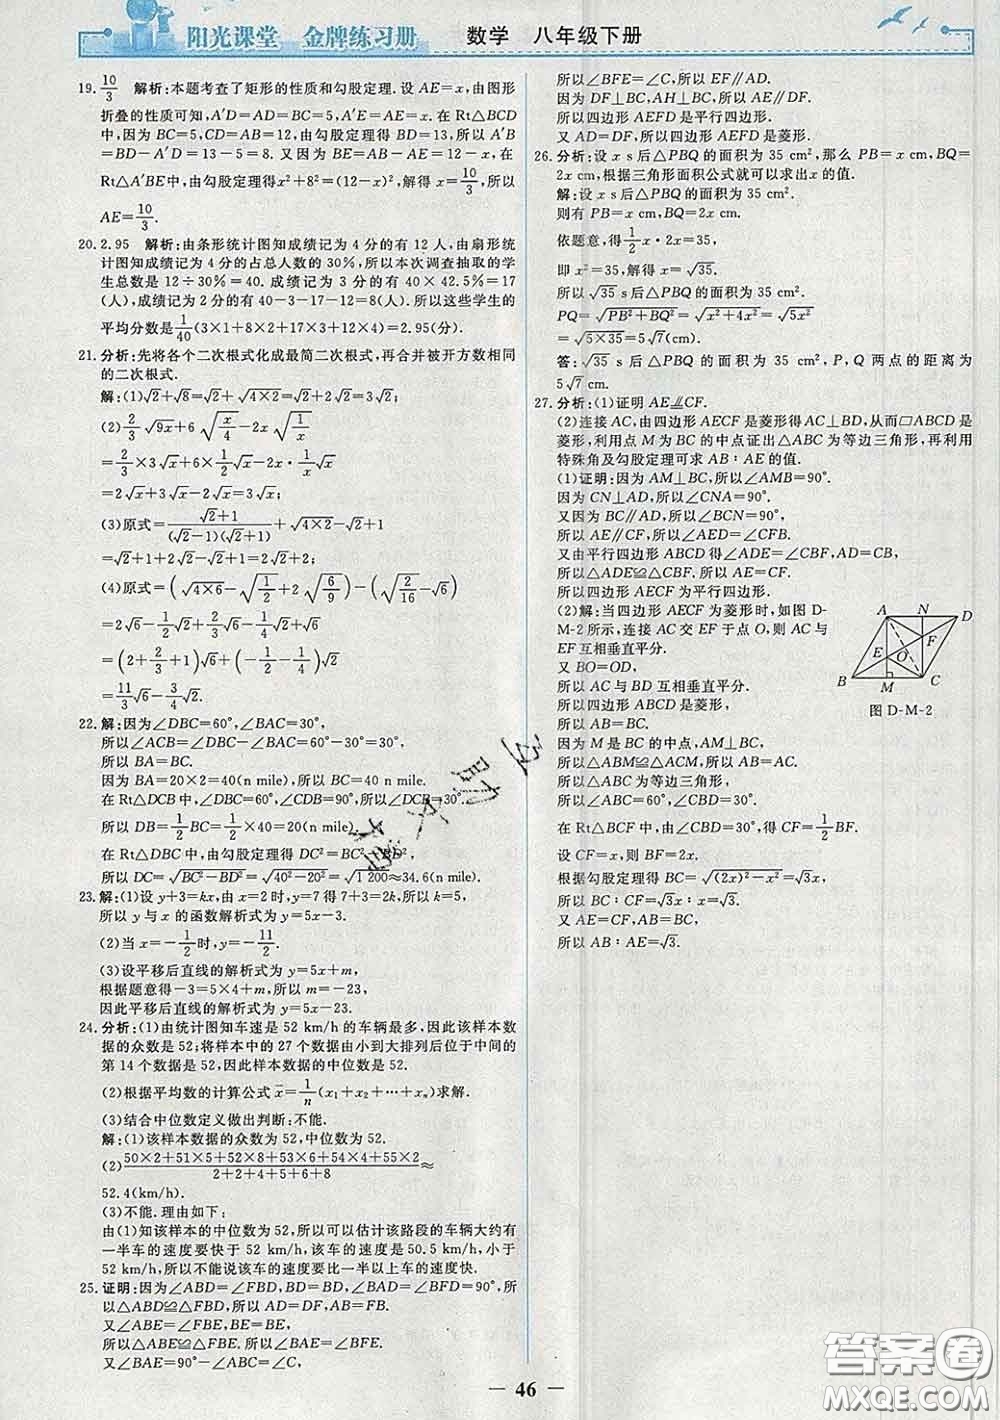 阳光课堂 金牌练习册 数学 八年级下册
19. 10/3 解析:本题考查了矩形的性质和勾股定理. 设 AE=x,由图形
折叠的性质可知,A′D=AD=BC=5,A′E=AE=x. 在 Rt△BCD
中,因为 BC=5,CD=AB=12,由勾股定理得 BD=13,所以 A′B
=BD-A′D=13-5=8. 又因为 BE=AB-AE=12-x,在
Rt△A′BE中,由勾股定理得x²+8²=(12-x)²,解得 x=10/3,所以
AE=10/3.
20. 2.95 解析:由条形统计图知成绩记为 4 分的有 12 人,由扇形统
计图知成绩记为 4 分的占总人数的 30%,所以本次调查抽取的学
生总数是 12÷30%=40. 成绩记为 3 分的有 40×42.5%=17
(人),成绩记为 2 分的有 40-3-17-12=8(人). 所以这些学生的
平均分数是1/40(3×1+8×2+17×3+12×4)=2.95(分).
21. 分析:先将各个二次根式化成最简二次根式,再合并被开方数相同
的二次根式.
解:(1)√2+√8=√2+√(4×2)=√2+2√2=3√2;
(2)2/3 √(9x)+6√(x/4)-2x√(1/x)
=2/3×3√x+6×1/2√x-2x·1/x√x
=2√x+3√x-2√x=3√x;
(3)原式=(√2+1)/((√2-1)(√2+1))+√(4×2)-√2+1
=√2+1+2√2-√2+1=2√2+2;
(4)原式=(√(4×6)-√(1/2)+2√(6/9))-(√(2/16)-√6)
=2√6-1/2√2+2/3√6-1/4√2+√6
=(2+2/3+1)√6+(-1/2-1/4)√2
=11/3√6-3/4√2.
22. 解:因为∠DBC=60°,∠BAC=30°,
所以∠ACB=∠DBC-∠BAC=60°-30°=30°,
所以 BA=BC.
因为 BA=20×2=40(n mile),所以 BC=40(n mile).
在 Rt△DCB 中,∠DBC=60°,∠BDC=90°,所以∠DCB=30°.
所以 DB=1/2BC=1/2×40=20(n mile).
在 Rt△DBC 中,由勾股定理得 DC²=BC²-BD²,
所以 DC=√(BC²-BD²)=√(40²-20²)=√1 200≈34.6(n mile).
23. 解:(1)设 y+3=kx,由 x=2时,y=7得 7+3=2k,所以 k=5,
所以 y 与 x 的函数解析式为 y=5x-3.
(2)当 x=-1/2时,y=-11/2.
(3)设平移后直线的解析式为 y=5x+m,
根据题意得-3=5×4+m,所以 m=-23,
因此平移后直线的解析式为 y=5x-23.
24. 分析:(1)由统计图知车速是 52 km/h 的车辆最多,因此该样本数
据的众数是52;将样本中的 27 个数据由小到大排列后位于中间的
第 14 个数据是 52,因此样本数据的中位数是 52.
(2)根据平均数的计算公式 x̄=1/n(x₁+x₂+…+xₙ)求解.
(3)结合中位数定义做出判断:不能.
解:(1)该样本数据的众数为 52,中位数为 52.
(2)(50×2+51×5+52×8+53×6+54×4+55×2)/(2+2+4+5+6+8)≈
52.4(km/h).
(3)不能. 理由如下:
由(1)知该样本的中位数为 52,所以可以估计该路段的车辆大约有
一半车的速度要快于 52 km/h,该车的速度是 50.5 km/h,小于
52 km/h,所以不能说该车的速度要比一半以上车的速度快.
25. 证明:因为∠ABD=∠FBD,BD=BD,∠BAD=∠BFD=90°,所
以△ABD≌△FBD,所以 AD=DF,AB=FB.
又∠ABE=∠FBE,BE=BE,
所以△ABE≌△FBE,所以∠BAE=∠BFE.
又∠BAE+∠BAH=90°,∠BAH+∠C=90°,所以∠BAE=∠C,
所以∠BFE=∠C,所以 EF∥AD.
因为 DF⊥BC,AH⊥BC,所以 AE∥DF.
所以四边形 AEFD 是平行四边形.
又 AD=DF,所以四边形 AEFD 是菱形.
26. 分析:设 x s 后△PBQ 的面积为 35 cm²,那么 PB=x cm,BQ=
2x cm,根据三角形面积公式就可以求出x 的值.
解:设 x s 后△PBQ 的面积为 35 cm².
则有 PB=x cm,BQ=2x cm.
依题意,得1/2x·2x=35,
即 x²=35,解得 x=√35.
所以 √35 s后△PBQ 的面积为 35 cm².
PQ=√(PB²+BQ²)=√(x²+4x²)=√(5x²)
=√(5×35)=5√7(cm).
答:√35 s 后△PBQ 的面积为 35 cm²,P,Q 两点的距离为
5√7 cm.
27. 分析:(1)证明 AE∥CF.
(2)连接 AC,由四边形 AECF 是菱形得 AC⊥BD,从而□ABCD 是
菱形,利用点 M 为 BC 的中点证出△ABC 为等边三角形,再利用
特殊角及勾股定理可求 AB∶AE 的值.
(1)证明:因为 AM⊥BC,所以∠AMB=90°.
因为 CN⊥AD,所以∠CNA=90°.
又因为 BC∥AD,所以∠BCN=90°.
所以 AE∥CF,所以∠AED=∠CFB.
又由平行四边形 ABCD 得∠ADE=∠CBF,AD=CB,
所以△ADE≌△CBF. 所以 AE=CF.
所以四边形 AECF 为平行四边形.
(2)解:当四边形 AECF 为菱形时,如图 D-
M-2 所示,连接 AC 交 EF 于点 O,则 AC 与
EF 互相垂直平分.
又 BO=OD,
所以 AC 与 BD 互相垂直平分.
所以四边形 ABCD 是菱形,
所以 AB=BC.
因为 M 是 BC 的中点,AM⊥BC,
所以△ABM≌△ACM,所以 AB=AC,
所以△ABC 为等边三角形,
所以∠ABC=60°,∠CBD=30°.
在 Rt△BCF 中,由∠CBD=30°,得 CF=1/2BF.
设 CF=x,则 BF=2x.
根据勾股定理得 BC=√((2x)²-x²)=√3x,
所以 BC∶CF=√3x∶x=√3.
又 AE=CF,AB=BC,
所以 AB∶AE=√3.
A N D
E O F
B M C
图 D-M-2
46
答案圈
MXQE.COM